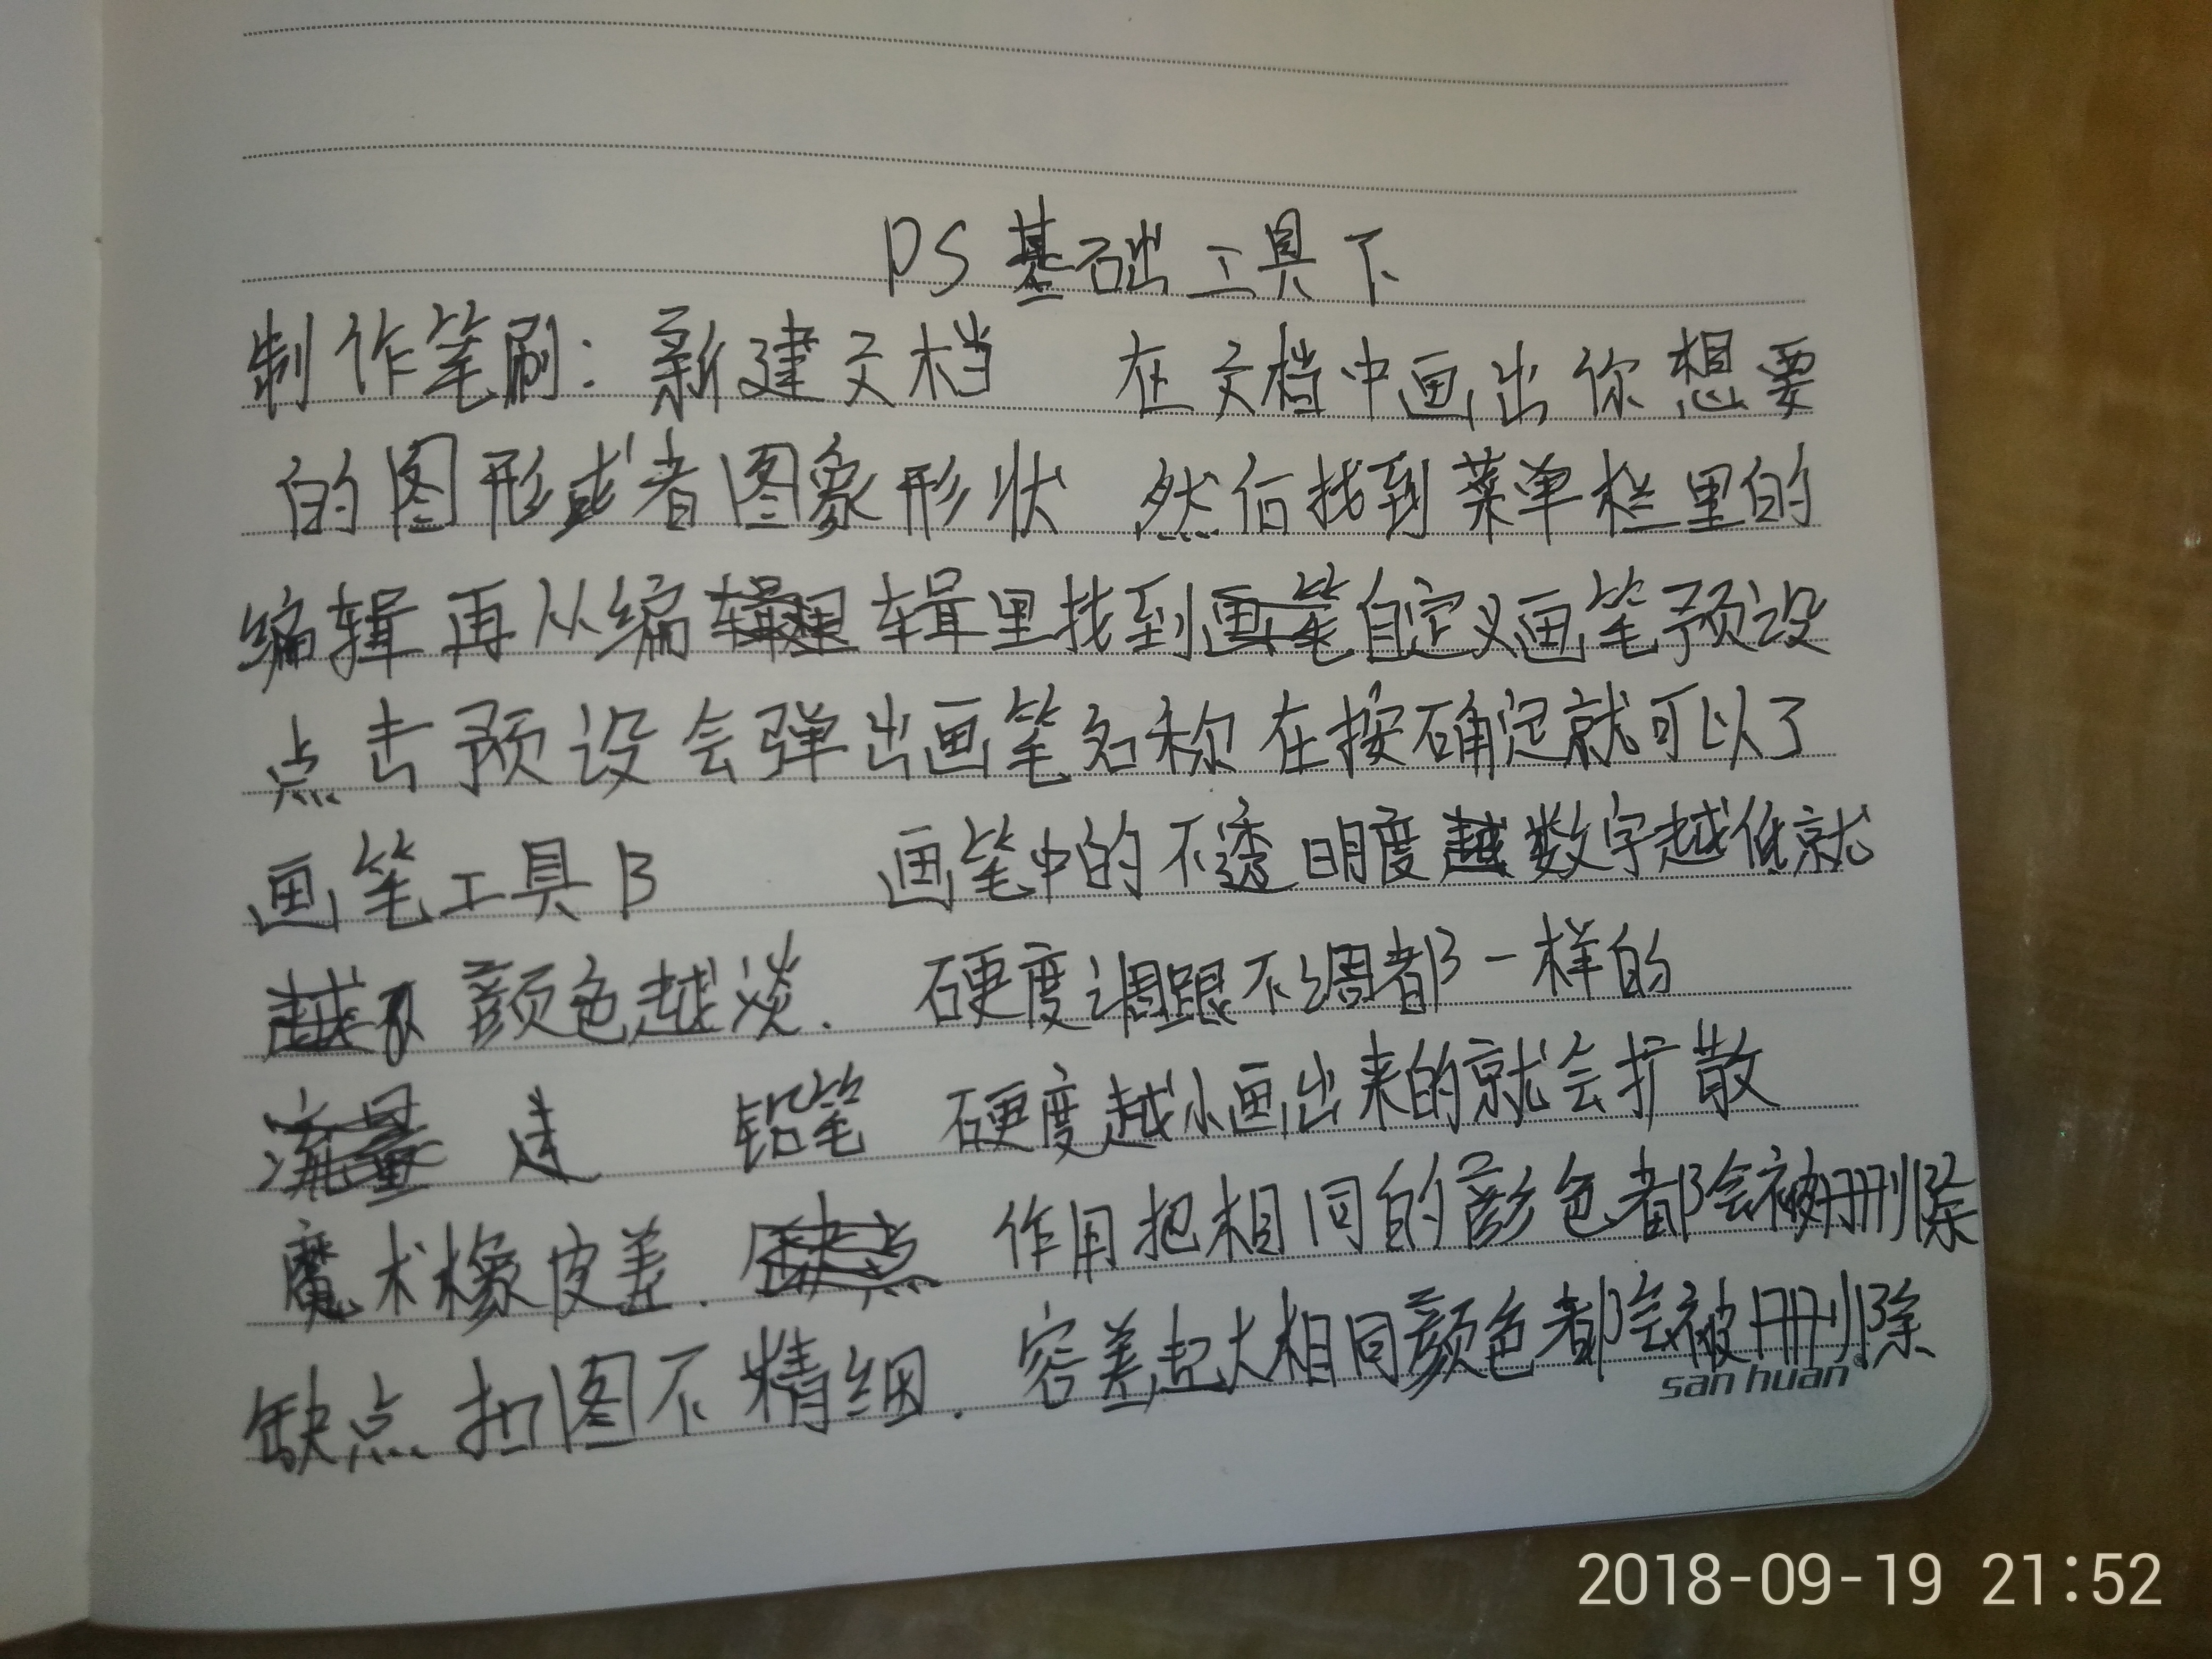 PS基础工具下
制作笔刷：新建文档 在文档中画出你想要
的图形或者图象形状 然后找到菜单栏里的
编辑再从编辑里找到自定义画笔预设
点击预设会弹出画笔名称在按确定就可以了
画笔工具B 画笔中的不透明度数字越低就
颜色越淡. 硬度调跟不调都一样的
铅笔 硬度越小画出来的就会扩散
魔术橡皮差. 作用把相同的颜色都会被删除
缺点 扣图不精细. 容差越大相同颜色都会被删除
san huan
2018-09-19 21:52